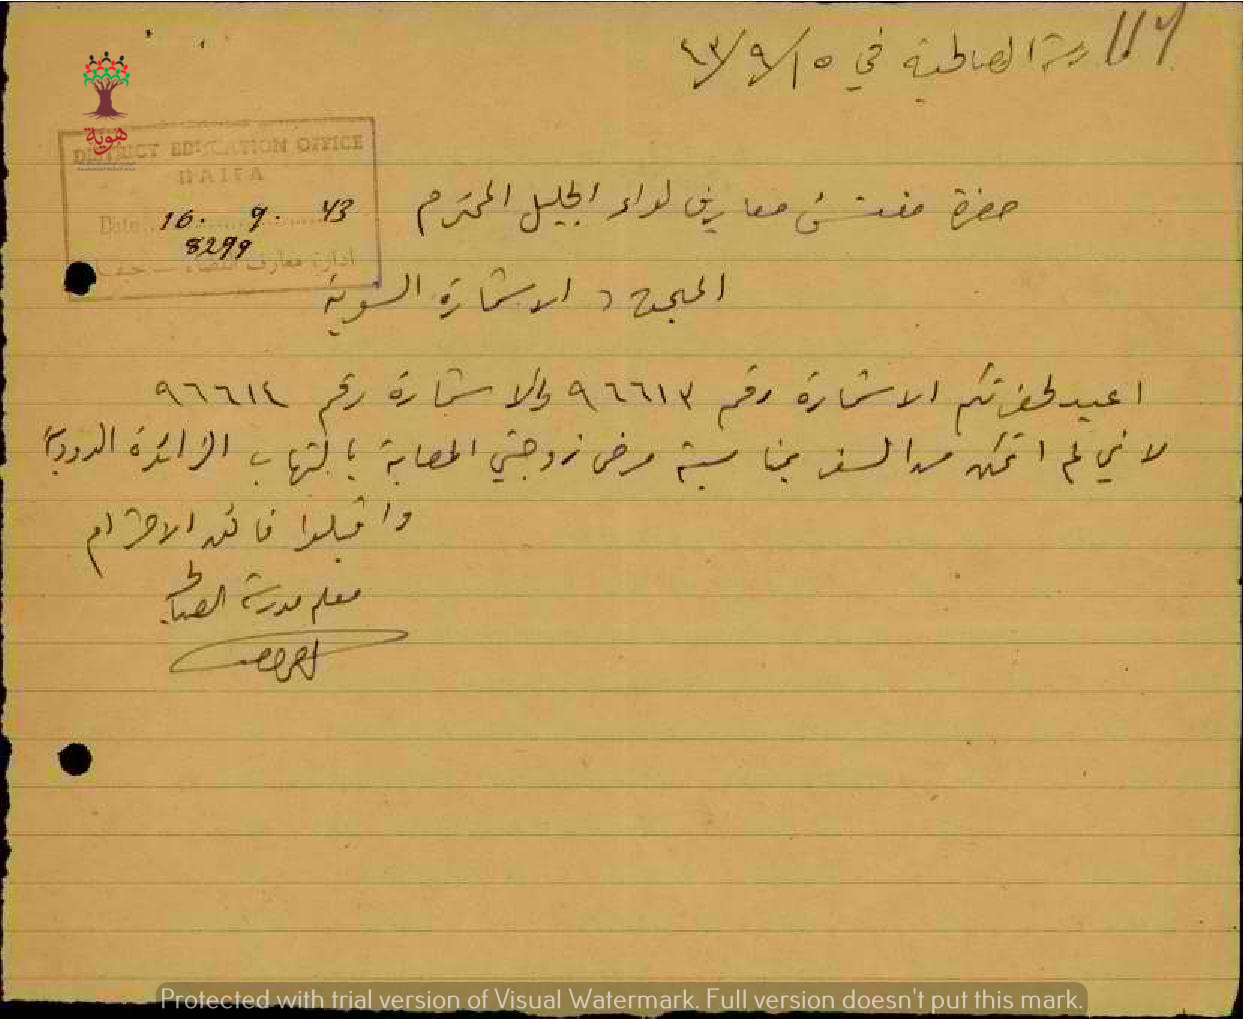 مدرسة الصالحية في ١٥/٩/٤٣
هوية
DISTRICT EDUCATION OFFICE
HAIFA
Date 16. 9. 43
8299
ادارة معارف القضاء
حضرة مفتش معارف لواء الجليل المحترم
الاستمارة السنوية
اعيد لحضرتكم الاستمارة رقم ٩٦٦١٣ والاستمارة رقم ٩٦٦١٤
لانني لم اتمكن من السفر بمناسبة مرض زوجتي المصابة بالتهاب الزائدة الدودية
واقبلوا فائق الاحترام
معلم مدرسة
Protected with trial version of Visual Watermark. Full version doesn't put this mark.